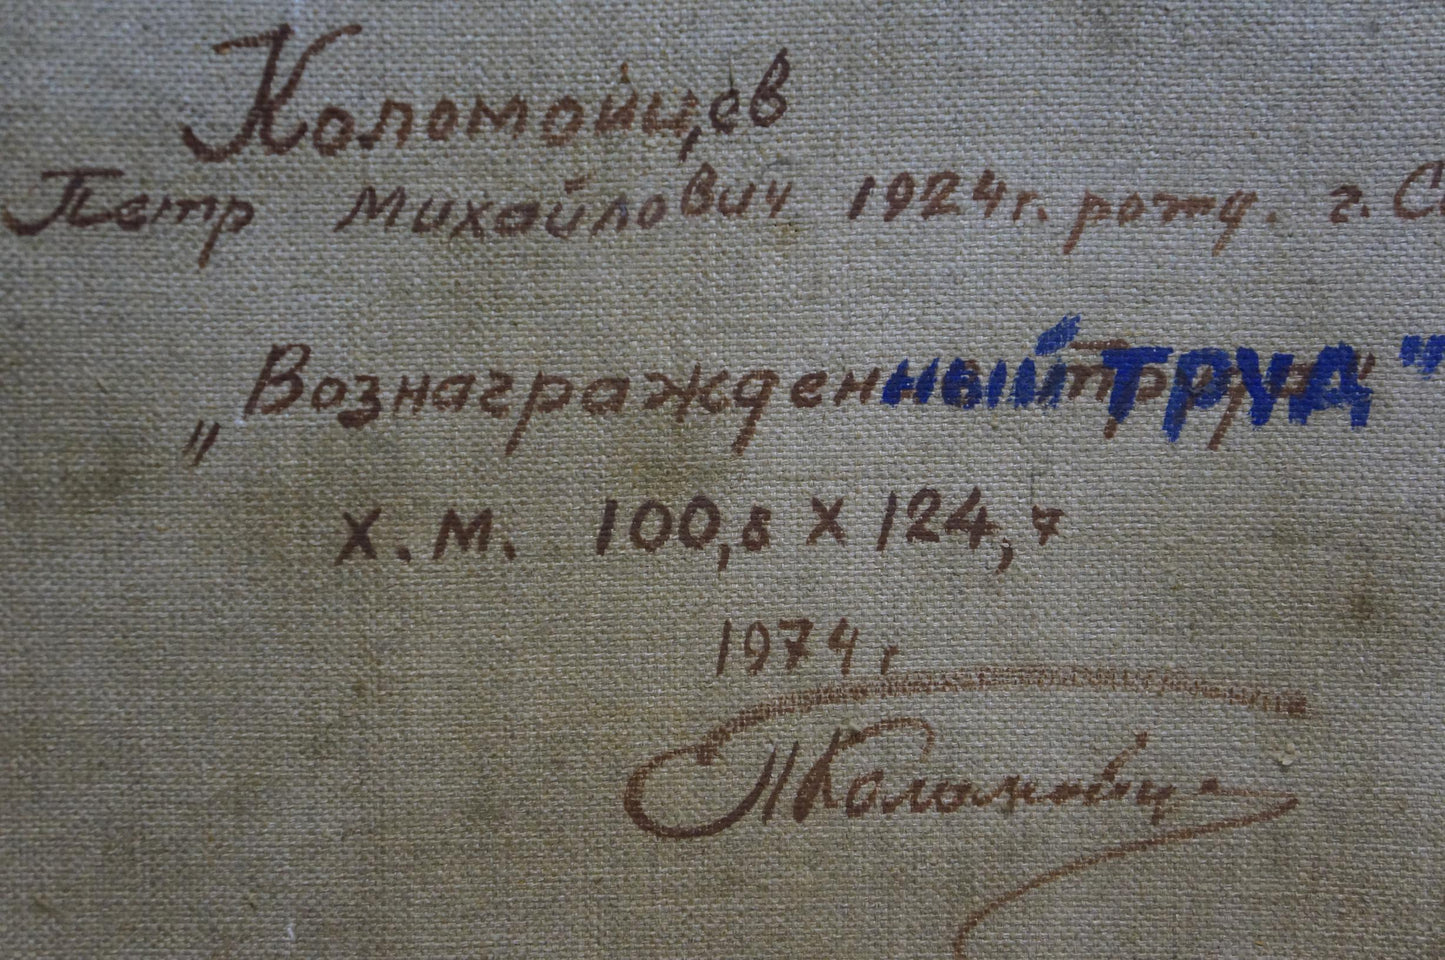 Коломойцев
Петр Михайлович 1924 г. рожд. г. С
„Вознагражденный труд"
х. м. 100,8 х 124,7
1974 г
П Коломойц